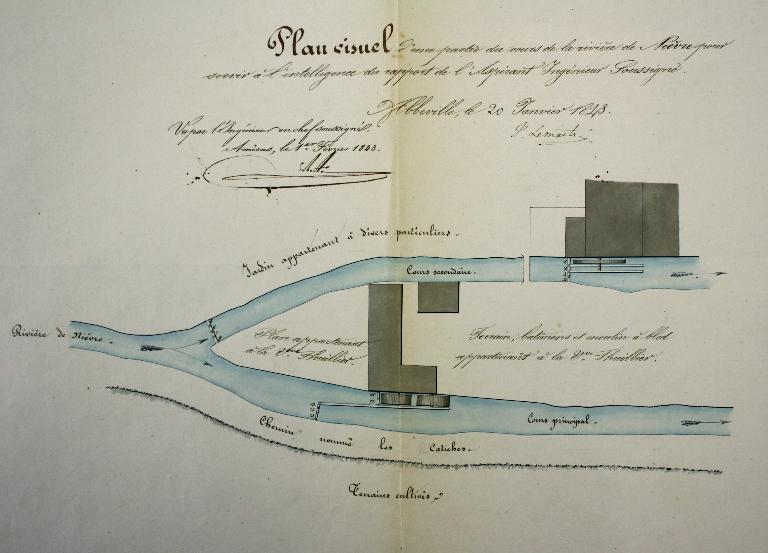 Plan visuel d'une partie du cours de la rivière de Nièvre pour
servir à l'intelligence du rapport de l'Aspirant Ingénieur Soussigné.
Abbeville, le 20 Janvier 1843.
Vu par l'Ingénieur en chef soussigné.
Amiens, le 1er Février 1843.
Jardin appartenant à divers particuliers.
Cours secondaire.
Rivière de Nièvre.
Plan appartenant
à la Vve Thuillier.
Terrain, batimens et moulin à bled
appartenant à la Vve Thuillier.
Cours principal.
Chemin nommé les Catiches.
Terrains cultivés.